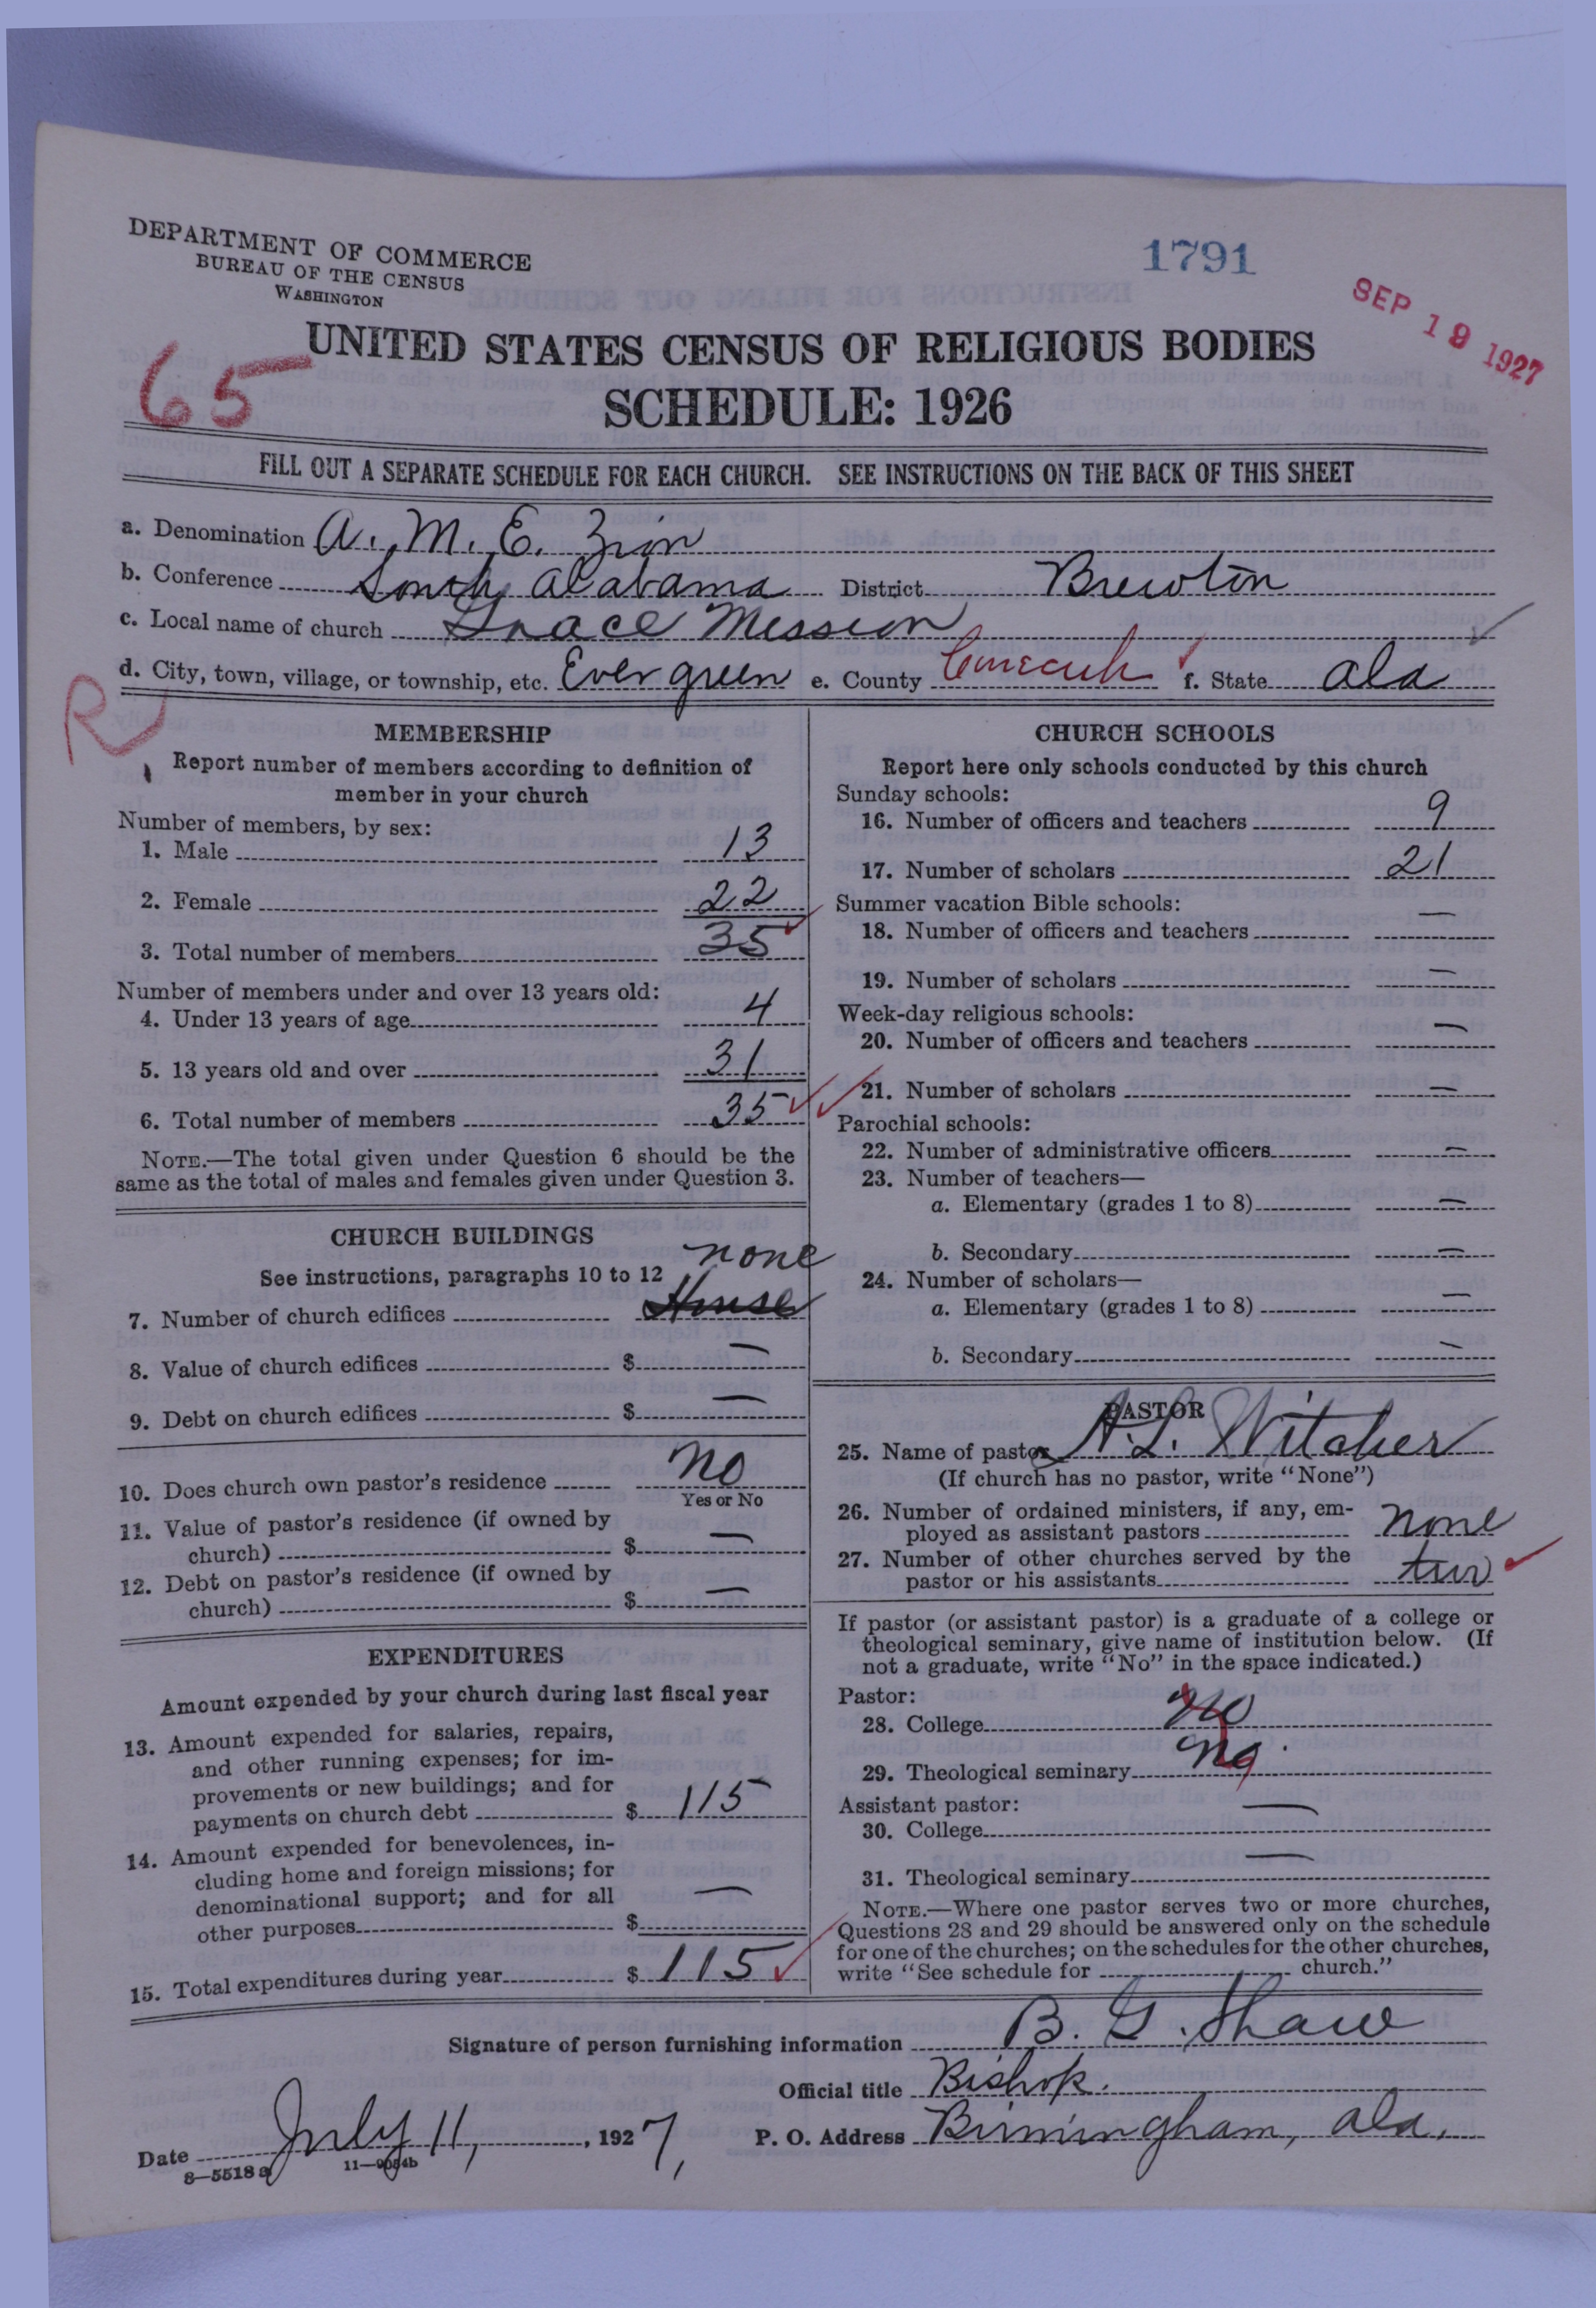 DEPARTMENT OF COMMERCE
BUREAU OF THE CENSUS
WASHINGTON
1791
SEP 19 1927
65
UNITED STATES CENSUS OF RELIGIOUS BODIES
SCHEDULE: 1926
FILL OUT A SEPARATE SCHEDULE FOR EACH CHURCH. SEE INSTRUCTIONS ON THE BACK OF THIS SHEET
a. Denomination A. M. E. Zion
b. Conference South Alabama District Brewton
c. Local name of church Grace Mission
d. City, town, village, or township, etc. Evergreen e. County Conecuh f. State Ala
R
MEMBERSHIP
Report number of members according to definition of
member in your church
Number of members, by sex:
1. Male 13
2. Female 22
3. Total number of members 35
Number of members under and over 13 years old:
4. Under 13 years of age 4
5. 13 years old and over 31
6. Total number of members 35
NOTE.—The total given under Question 6 should be the
same as the total of males and females given under Question 3.
CHURCH BUILDINGS
See instructions, paragraphs 10 to 12 none
7. Number of church edifices House
8. Value of church edifices $ —
9. Debt on church edifices $ —
10. Does church own pastor's residence No
Yes or No
11. Value of pastor's residence (if owned by
church) $ —
12. Debt on pastor's residence (if owned by
church) $ —
EXPENDITURES
Amount expended by your church during last fiscal year
13. Amount expended for salaries, repairs,
and other running expenses; for im-
provements or new buildings; and for
payments on church debt $ 115
14. Amount expended for benevolences, in-
cluding home and foreign missions; for
denominational support; and for all
other purposes $ —
15. Total expenditures during year $ 115
CHURCH SCHOOLS
Report here only schools conducted by this church
Sunday schools:
16. Number of officers and teachers 9
17. Number of scholars 21
Summer vacation Bible schools:
18. Number of officers and teachers —
19. Number of scholars —
Week-day religious schools:
20. Number of officers and teachers —
21. Number of scholars —
Parochial schools:
22. Number of administrative officers —
23. Number of teachers—
a. Elementary (grades 1 to 8) —
b. Secondary —
24. Number of scholars—
a. Elementary (grades 1 to 8) —
b. Secondary —
PASTOR
25. Name of pastor A. L. Witcher
(If church has no pastor, write "None")
26. Number of ordained ministers, if any, em-
ployed as assistant pastors none
27. Number of other churches served by the
pastor or his assistants two
If pastor (or assistant pastor) is a graduate of a college or
theological seminary, give name of institution below. (If
not a graduate, write "No" in the space indicated.)
Pastor:
28. College no
29. Theological seminary no.
Assistant pastor:
30. College —
31. Theological seminary —
NOTE.—Where one pastor serves two or more churches,
Questions 28 and 29 should be answered only on the schedule
for one of the churches; on the schedules for the other churches,
write "See schedule for church."
Signature of person furnishing information B. G. Shaw
Official title Bishop.
Date July 11, , 1927, P. O. Address Birmingham, Ala.
8—5518a 11—9054b